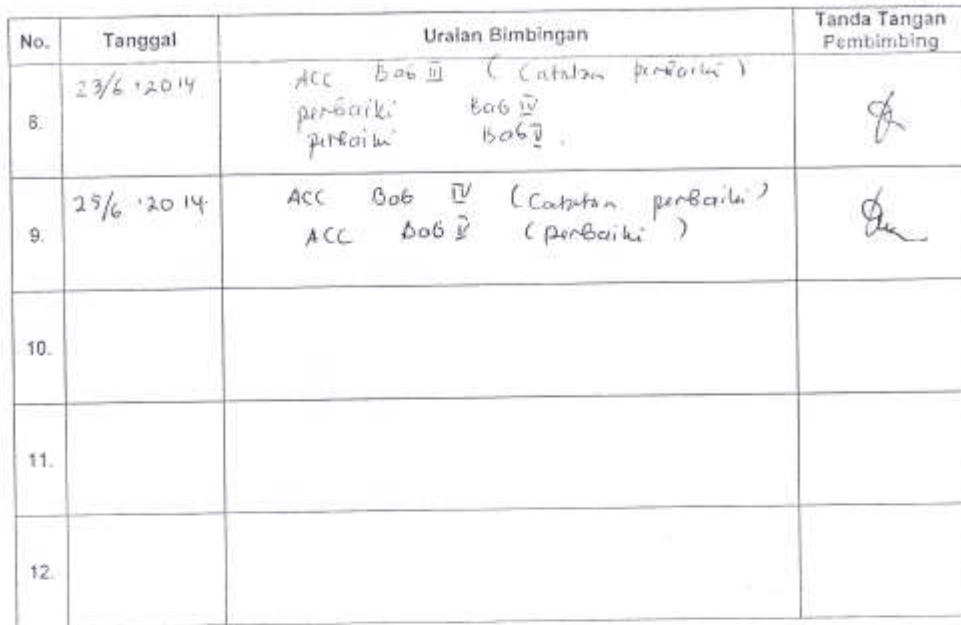 No. Tanggal Uraian Bimbingan Tanda Tangan
Pembimbing
8. 23/6 '2014 ACC Bab III (Catatan perbaiki)
perbaiki Bab IV
perbaiki Bab V.
9. 25/6 '2014 ACC Bab IV (Catatan perbaiki)
ACC Bab V (perbaiki)
10.
11.
12.